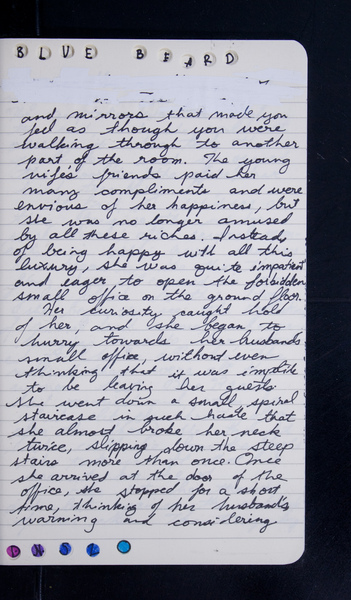 BLUE BEARD
and mirrors that made you
feel as though you were
walking through to another
part of the room. The young
wife's friends paid her
many compliments and were
envious of her happiness, but
she was no longer amused
by all these riches. Insteads
of being happy with all this
luxury, she was quite impatient
and eager to open the forbidden
small office on the ground floor.
Her curiosity caught hold
of her, and she began to
hurry towards her husbands
small office, without even
thinking that it was impolite
to be leaving her guests.
She went down a small, spiral
staircase in such haste that
she almost broke her neck
twice, slipping down the steep
stairs more than once. Once
she arrived at the door of the
office, she stopped for a short
time, thinking of her husband's
warning and considering